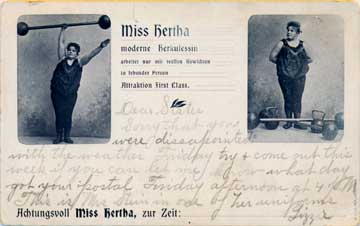 Miss Hertha
moderne Herkulessin
arbeitet nur mit reellen Gewichten
in lebender Person
Attraktion First Class.
Dear Sister
Sorry that you
were dissapointed
with the weather Friday try & come out this
week if you can let me know what day
got your Postal Friday afternoon at 4 P M
This is Miss in one of her uniforms
Lizzie
Achtungsvoll Miss Hertha, zur Zeit: